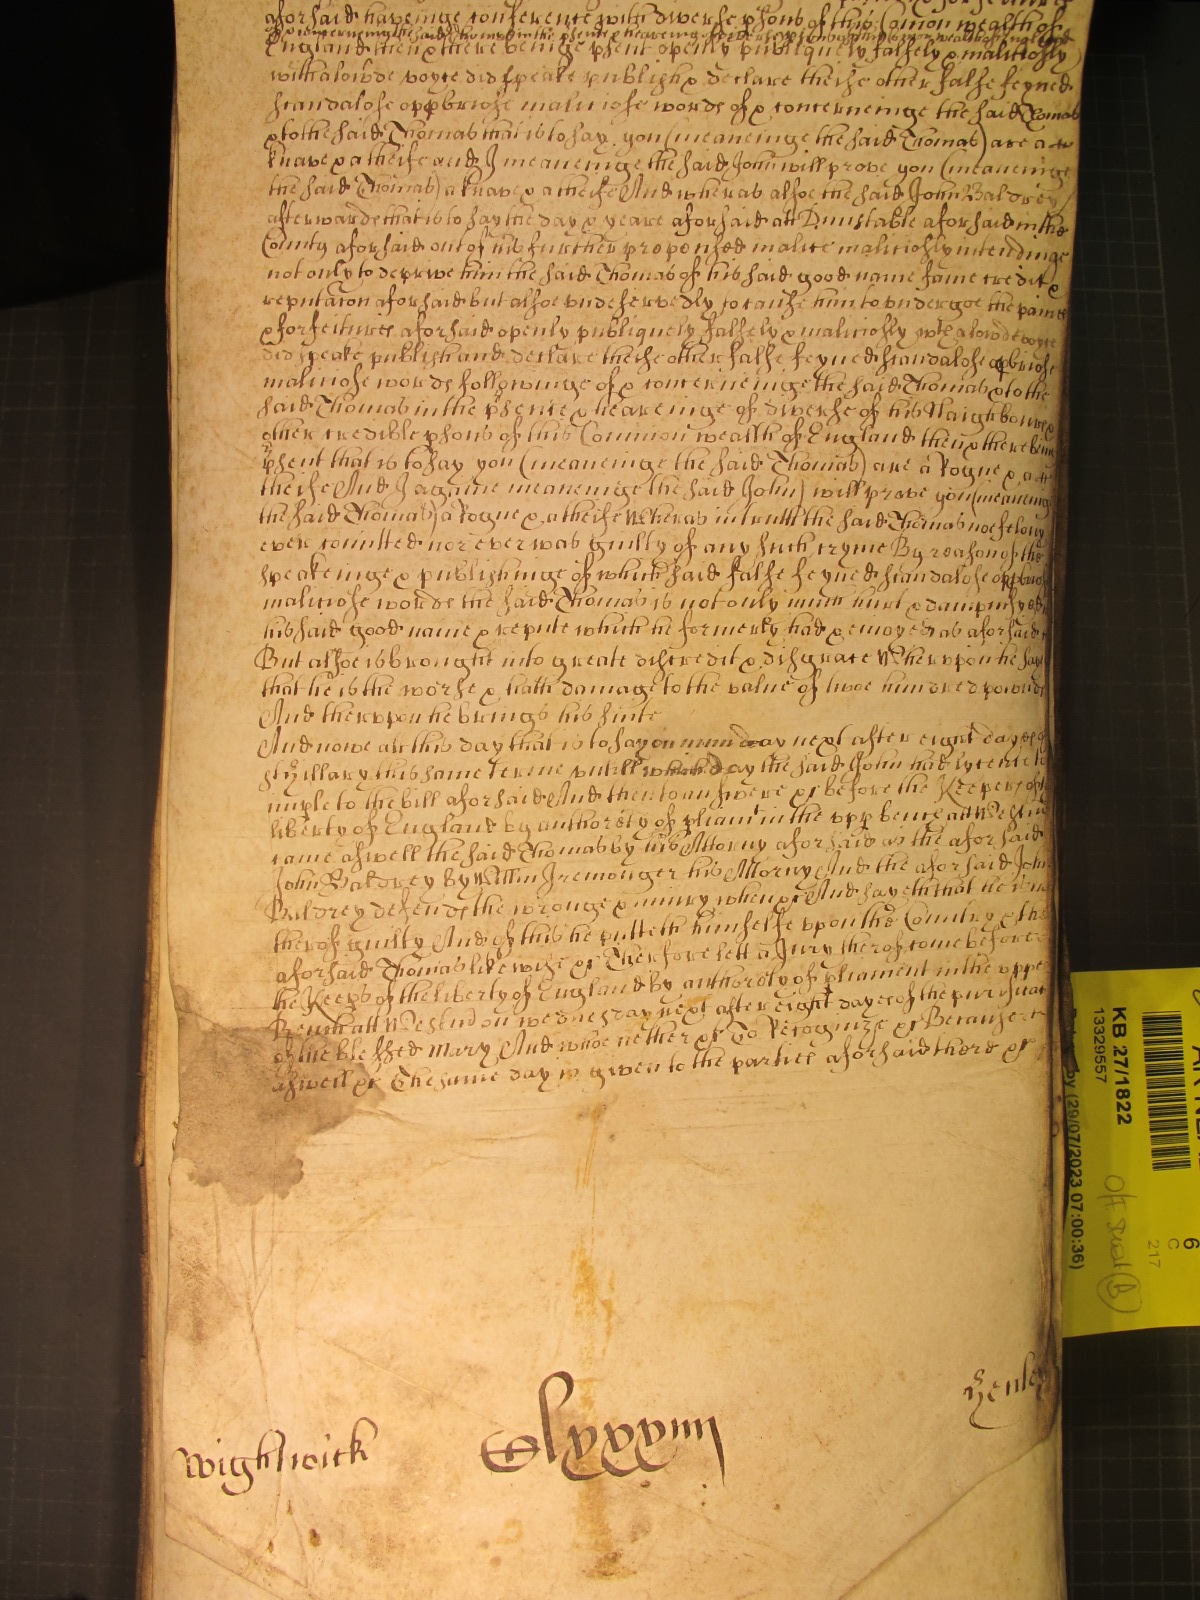 aforsaid haveinge conference with diverse psons of this Comon wealth of
England then & there beinge psent openly publiquely falsely & malitiosly
with a lowde voyce did speake publish & declare theise other false feyned
scandalose opprobriose malitiose words of & concerneinge the said Thomas
& to the said Thomas that is to say you (meaneinge the said Thomas) are a
knave & a theife and I meaneinge the said John will prove you (meaneinge
the said Thomas) a knave & a theife And wheras alsoe the said John Baldrey
afterwards that is to say the day & yeare aforsaid att Dunstable aforsaid in the
County aforsaid out of his further prepensed malice malitiosly intendinge
not only to deprive him the said Thomas of his said good name fame credit &
reputacon aforsaid but alsoe undeservedly to cause him to undergoe the paines
& forfeitures aforsaid openly publiquely falsely & malitiosly wth a lowde voyce
did speake publish and declare theise other false feyned scandalose opbriose
malitiose words followinge of & concerneinge the said Thomas & to the
said Thomas in the psence & heareinge of diverse of his Naighbours &
other credible psons of this Common wealth of England then & there beinge
psent that is to say you (meaneinge the said Thomas) are a Rogue & a
theife And I againe meaneinge the said John) will prove you (meaneing
the said Thomas) a Rogue & a theife Wheras in truth the said Thomas noe felony
ever comitted nor ever was guilty of any such cryme By reason of the
speakeinge & publishinge of which said false feyned scandalose oppbriose
malitiose words the said Thomas is not only much hurt & dampnifyed
his said good name & repute which he formerly had & enioyed as aforsaid
But alsoe is brought into greate discredit & disgrace Wherupon he saith
that he is the worse & hath damage to the value of twoe hundred pounds
And therupon he brings his suite
And nowe att this day that is to say on munday next after eight dayes of
st Hillary this same terme untill which day the said John had lycence to
imple to the bill aforsaid And then to answere &c before the Keepers of the
liberty of England by authority of pliamt in the upp bench att Westm
came aswell the said Thomas by his Attorny aforsaid as the aforsaid
John Baldrey by Willm Iremonger his Attorny And the aforsaid John
Baldrey defends the wronge & iniury when &c And sayeth that he is not
therof guilty And of this he putteth himselfe upon the Country & the
aforsaid Thomas likewise &c Therfore lett a Jury therof come before
the Keeps of the liberty of England by authority of pliament in the upper
Bench att Westm on wednesday next after eight dayes of the purificat
of the blessed Mary And whoe nether &c To Recognize &c Because
aswell &c The same day is given to the parties aforsaid there &c
Wightwick
Clxxxiiii
Henley
KB 27/1822
13329557
(29/07/2023 07:00:36)
217
C
6